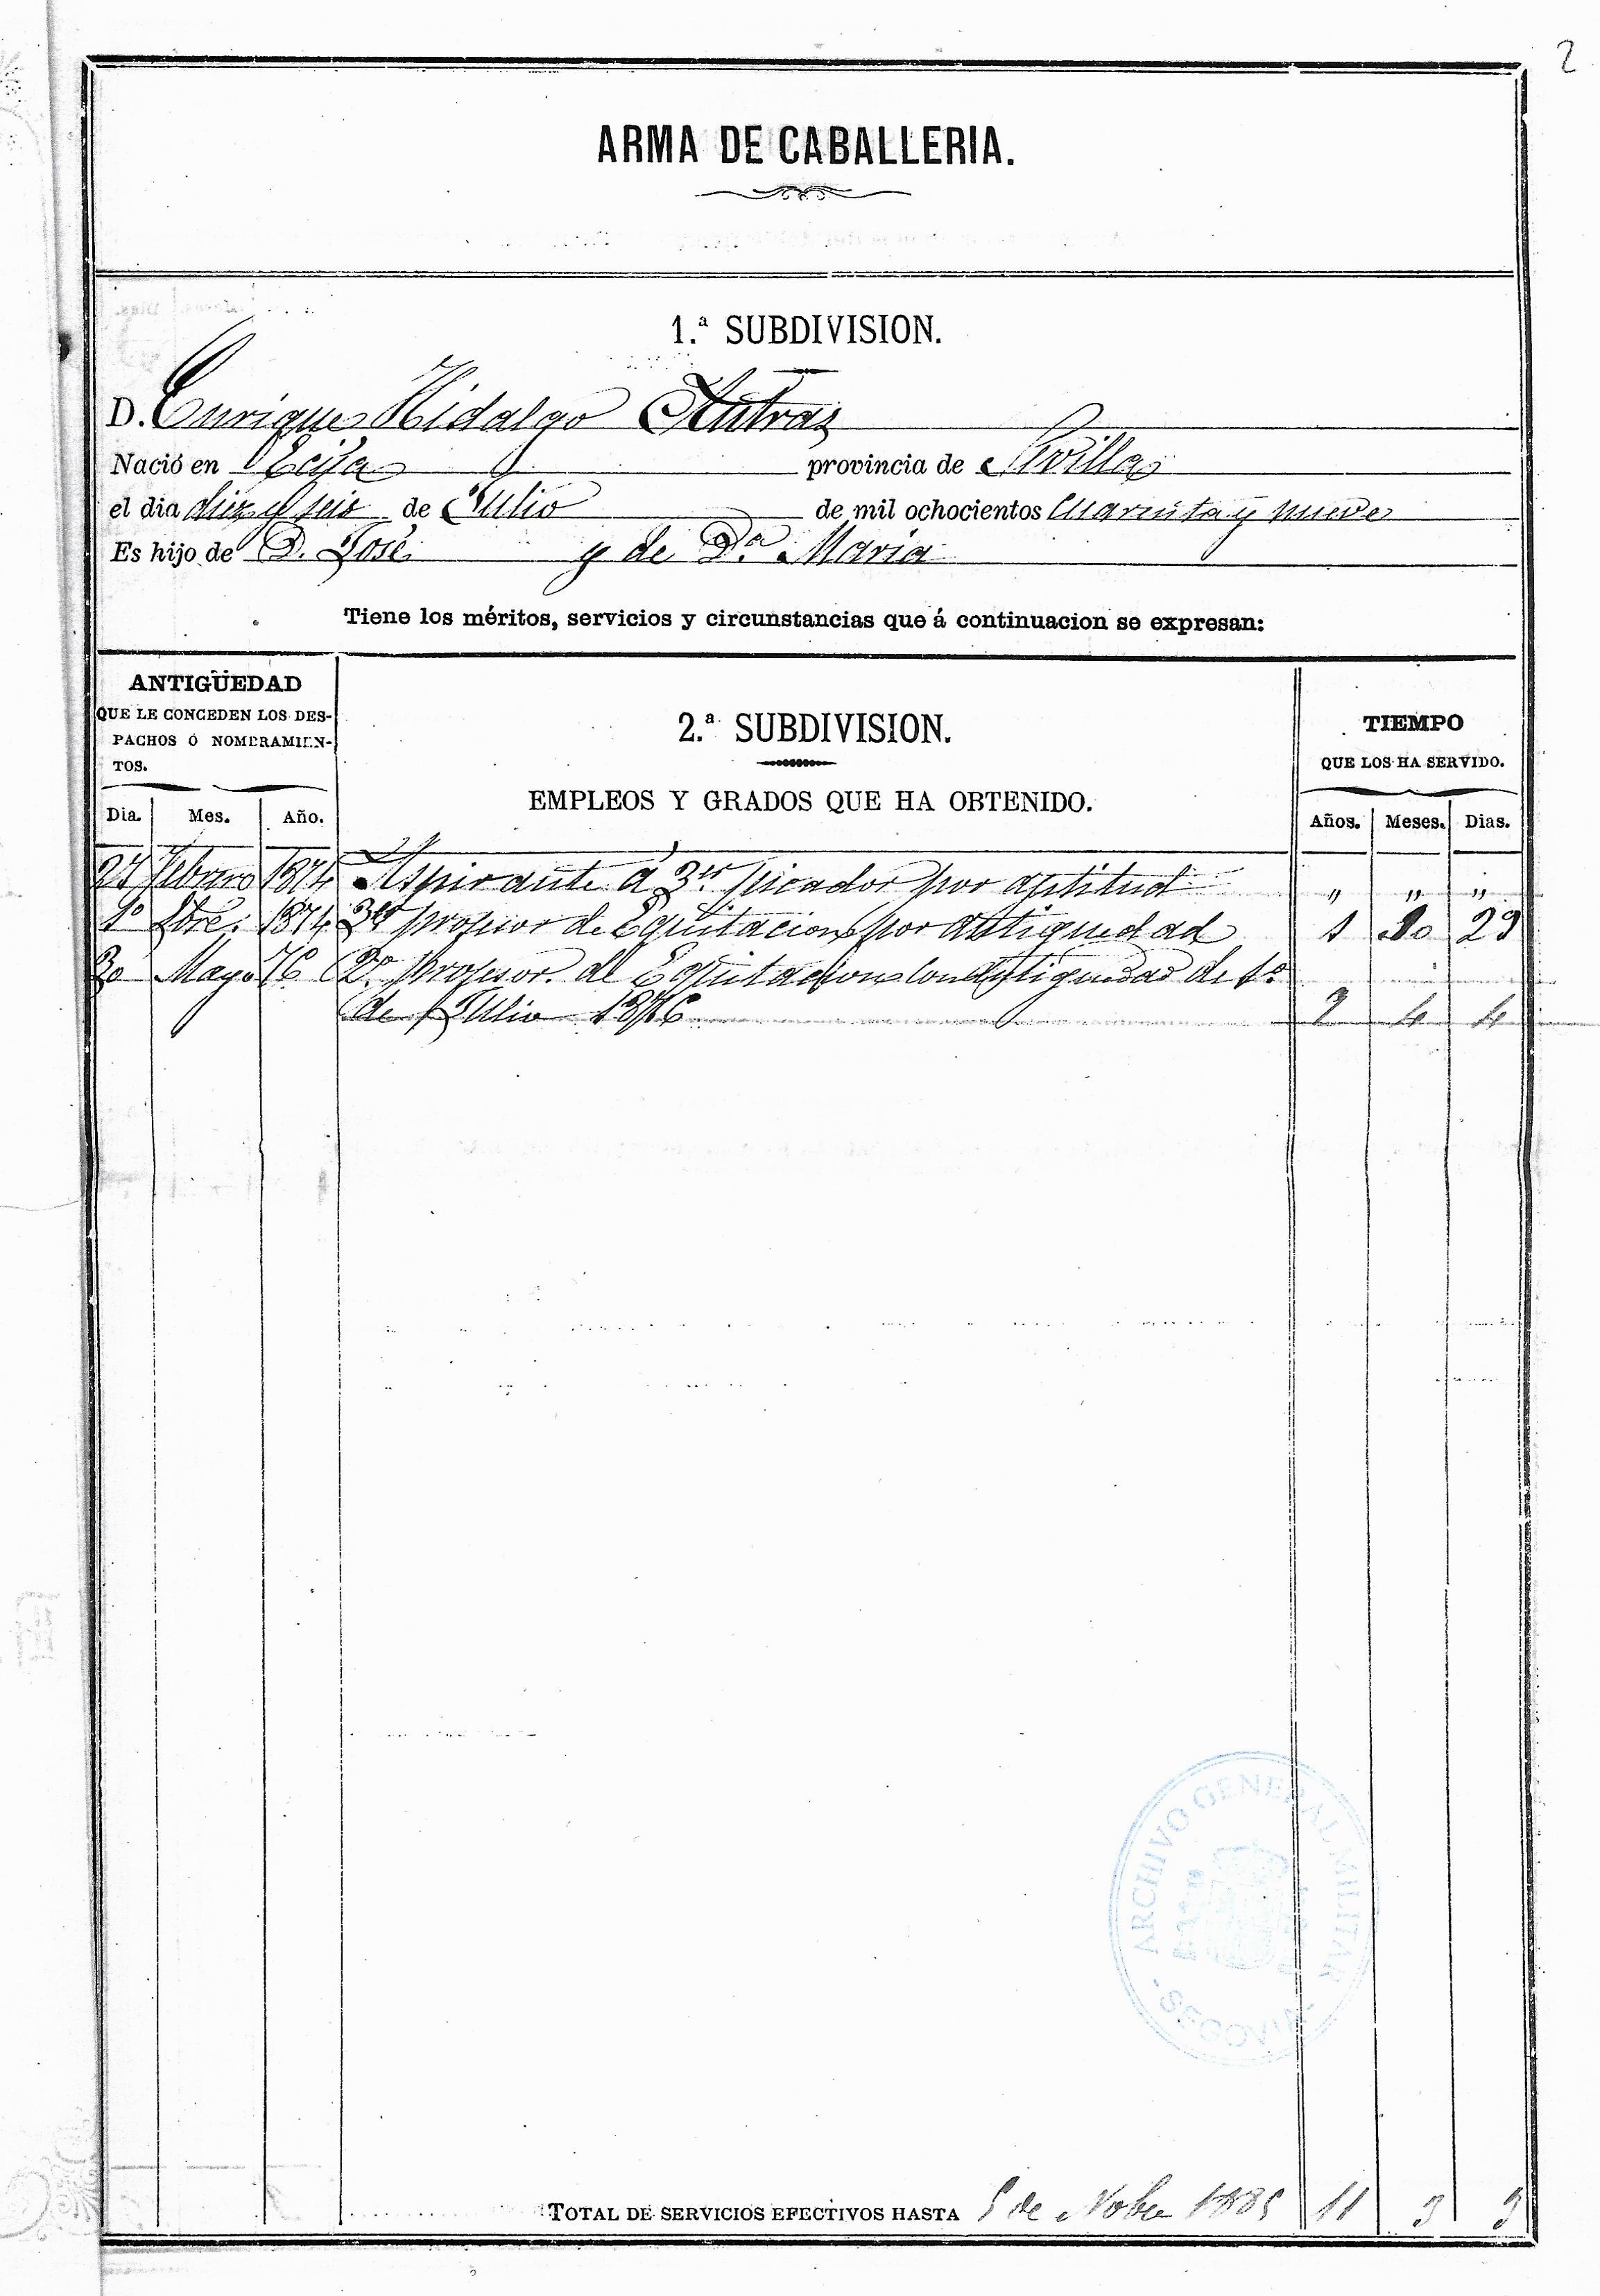 2
ARMA DE CABALLERIA.
1.ª SUBDIVISION.
D. Enrique Hidalgo Autras
Nació en Ecija provincia de Sevilla
el dia diez y seis de Julio de mil ochocientos cuarenta y nueve
Es hijo de D. José y de Dª Maria
Tiene los méritos, servicios y circunstancias que á continuacion se expresan:
ANTIGÜEDAD
QUE LE CONCEDEN LOS DES-
PACHOS Ó NOMBRAMIEN-
TOS.
2.ª SUBDIVISION.
EMPLEOS Y GRADOS QUE HA OBTENIDO.
TIEMPO
QUE LOS HA SERVIDO.
Dia. Mes. Año. Años. Meses. Dias.
27 Febrero 1874 Aspirante á 3er picador por aptitud " " "
1º 1874 3er profesor de Equitacion por antiguedad 1 29
30 Mayo 76 2º Profesor de Equitacion con antiguedad de 1º
de Julio 1876 4 4
ARCHIVO GENERAL MILITAR
- SEGOVIA -
TOTAL DE SERVICIOS EFECTIVOS HASTA 5 de Nobre 1885 11 3 9